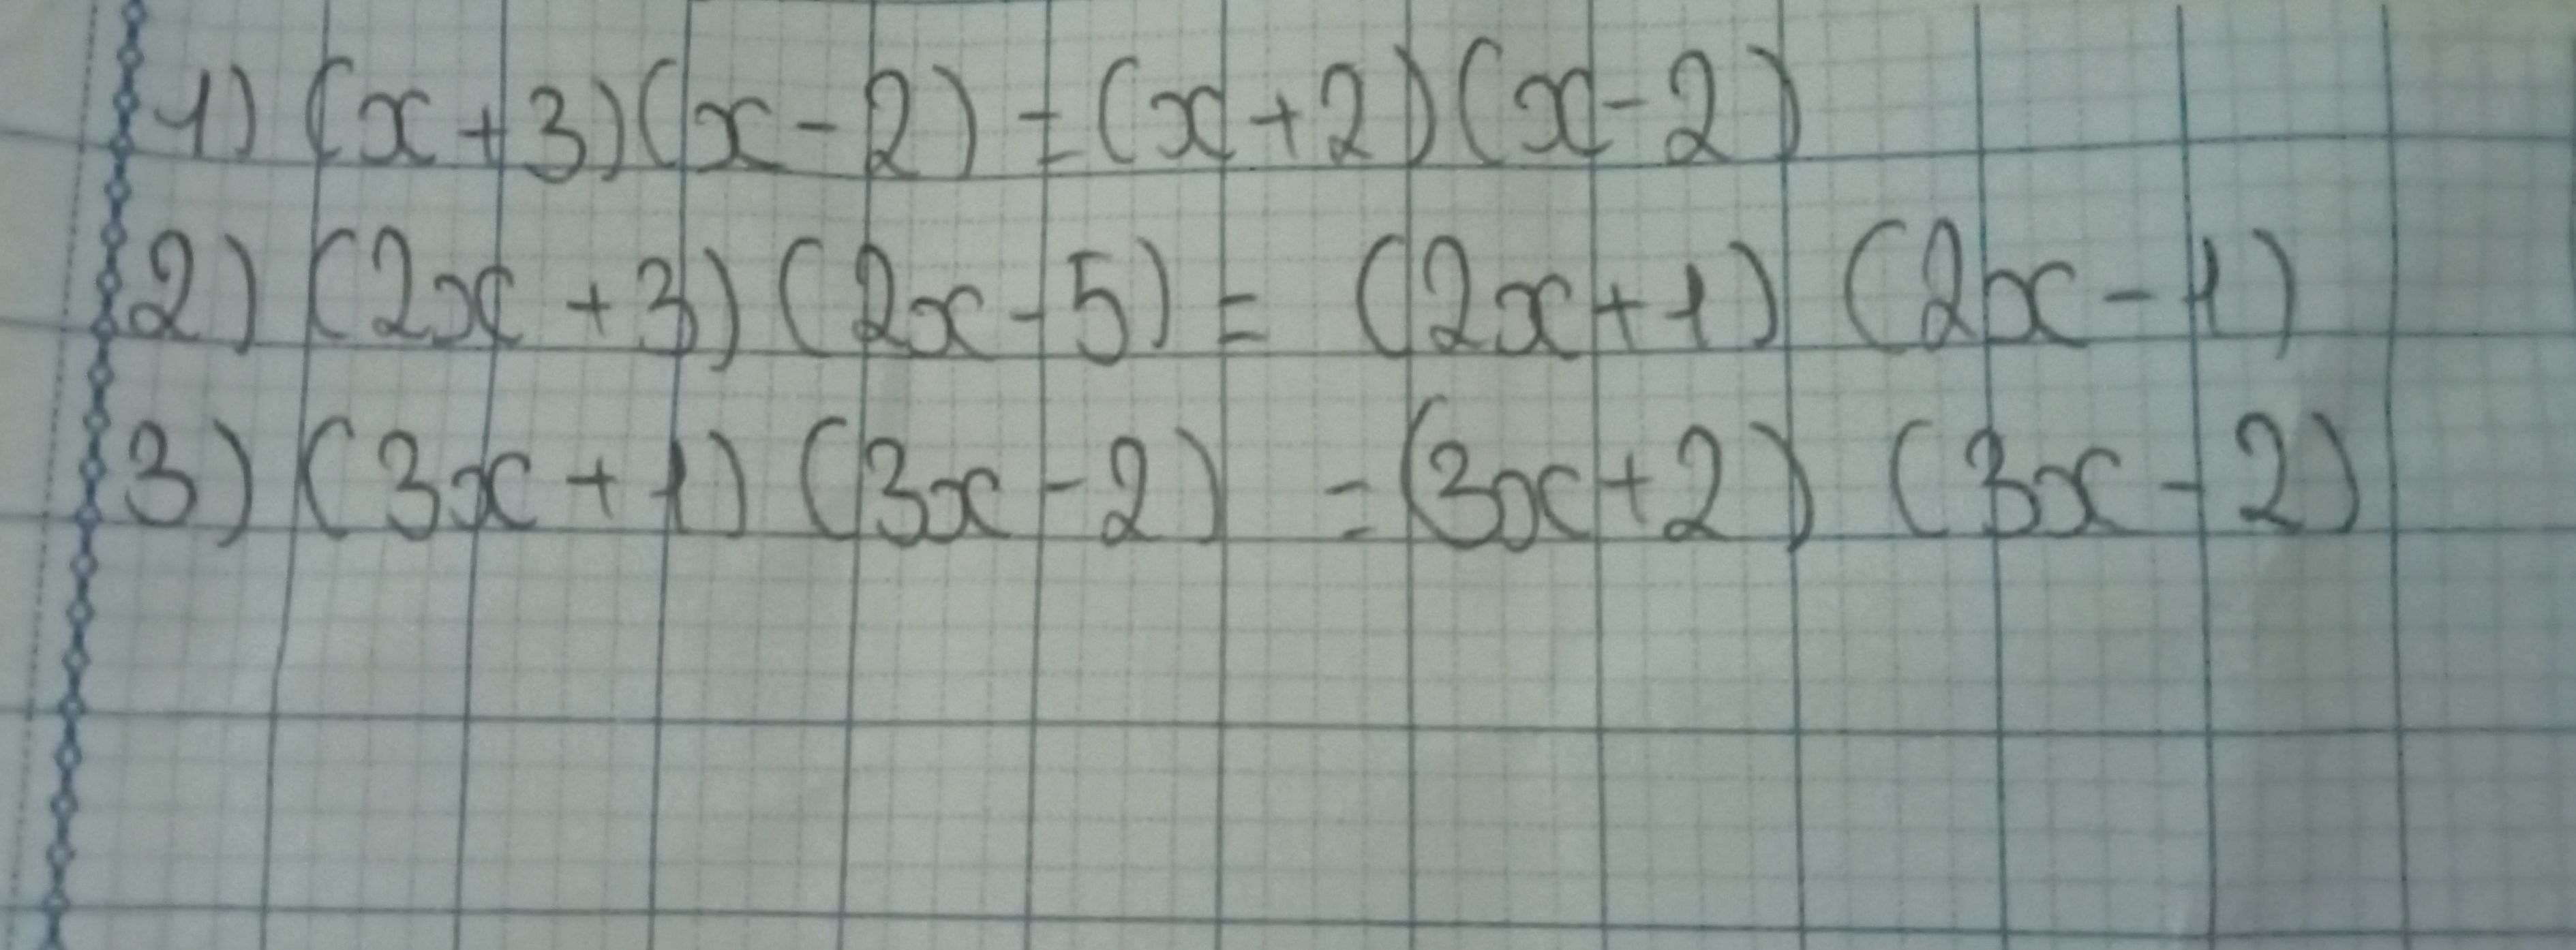 1) (x+3)(x-2)=(x+2)(x-2)
2) (2x+3)(2x-5)=(2x+1)(2x-1)
3) (3x+1)(3x-2)=(3x+2)(3x-2)